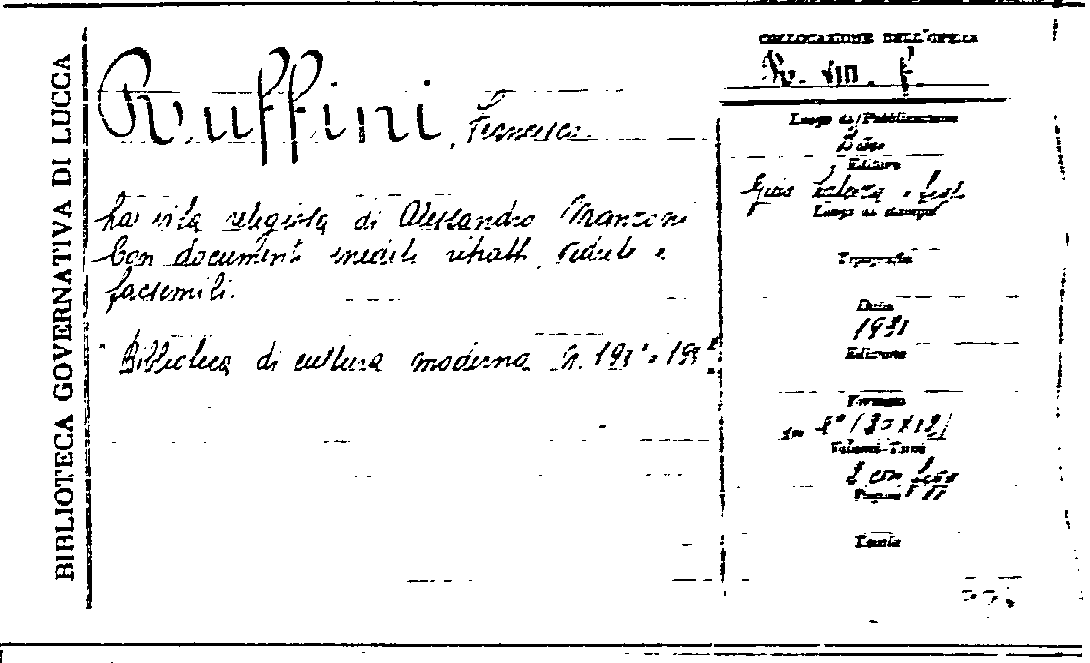 BIBLIOTECA GOVERNATIVA DI LUCCA
Ruffini, Francesco
La vita religiosa di Alessandro Manzoni
Con documenti inediti ritratti vedute e
facsimili.
Biblioteca di cultura moderna N.
COLLOCAZIONE DELL'OPERA
R. VIII. F.
Luogo di Pubblicazione
Bari
Editore
Gius Laterza e figli
Luogo di stampa
Tipografia
Data
1931
Edizione
Formato
in 8°
Volumi-Tomi
2 con
Pagine
Tavole